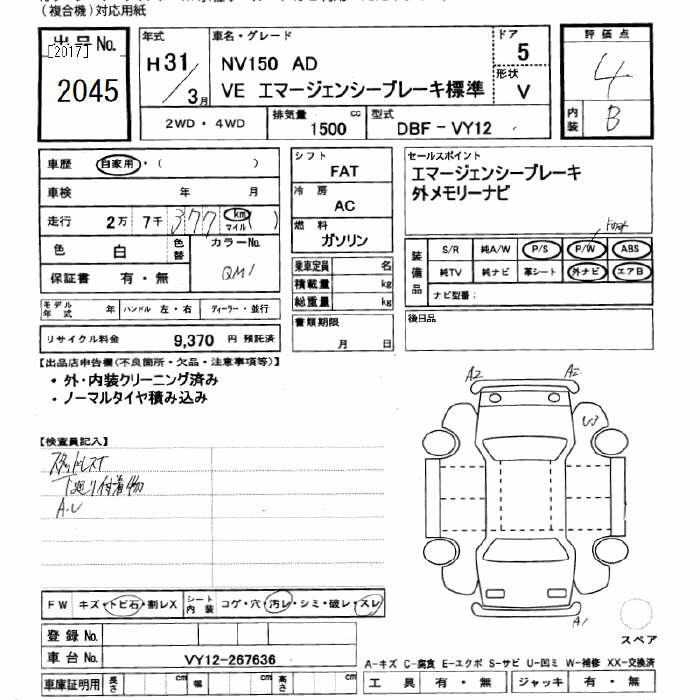 (複合機)対応用紙
出品No.
[2017]
2045
年式
H31/3月
車名・グレード
NV150 AD
VE エマージェンシーブレーキ標準
ドア
5
形状
V
2WD・4WD
排気量 1500 cc
型式 DBF-VY12
評価点
4
内装 B
車歴 自家用・( )
車検 年 月
走行 2万 7千 377 km マイル ( )
色 白 色替
カラーNo.
QM1
保証書 有・無
モデル年式 年 ハンドル 左・右 ディーラー・並行
リサイクル料金 9,370 円 預託済
シフト
FAT
冷房
AC
燃料
ガソリン
乗車定員 名
積載量 kg
総重量 kg
書類期限
月 日
セールスポイント
エマージェンシーブレーキ
外メモリーナビ
装備品
S/R 純A/W P/S P/W ABS
純TV 純ナビ 革シート 外ナビ エアB
ナビ型番:
後日品
【出品店申告欄(不良箇所・欠品・注意事項等)】
・外・内装クリーニング済み
・ノーマルタイヤ積み込み
【検査員記入】
スタットレスT
下廻り付着物
A.U
A2 A2
U3
A1
スペア
FW キズ・トビ石・割レX
シート内装 コゲ・穴・汚レ・シミ・破レ・スレ
登録No.
車台No. VY12-267636
車庫証明用 長さ cm 幅 cm 高さ cm
A-キズ C-腐食 E-エクボ S-サビ U-凹ミ W-補修 XX-交換済
工具 有・無 ジャッキ 有・無